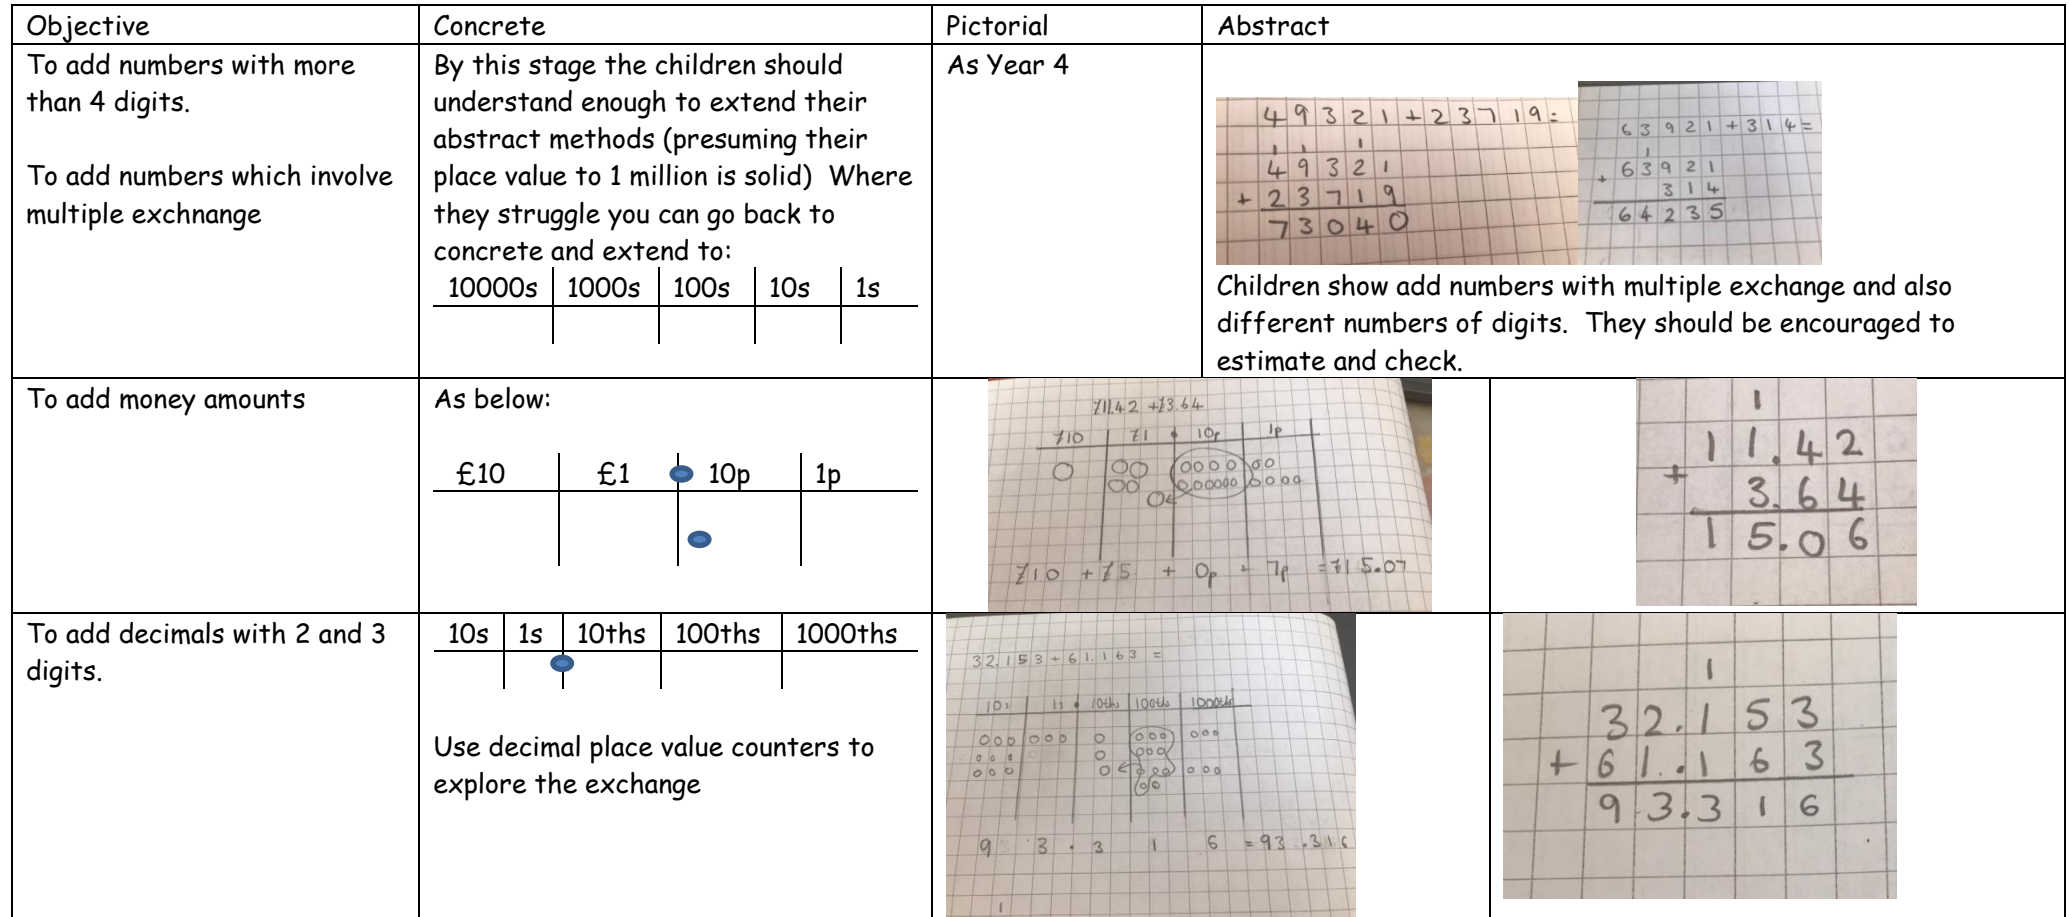 Objective
Concrete
Pictorial
Abstract
To add numbers with more
than 4 digits.
To add numbers which involve
multiple exchnange
By this stage the children should
understand enough to extend their
abstract methods (presuming their
place value to 1 million is solid)  Where
they struggle you can go back to
concrete and extend to:
10000s 1000s 100s 10s 1s
As Year 4
49321+23719=
1 1 1
49321
+ 23719
73040
63921+314=
1
63921
+ 314
64235
Children show add numbers with multiple exchange and also
different numbers of digits.  They should be encouraged to
estimate and check.
To add money amounts
As below:
£10 £1 10p 1p
£11.42 + £3.64
£10 £1 . 10p 1p
£10 + £5 + 0p + 7p = £15.07
1
11.42
+ 3.64
15.06
To add decimals with 2 and 3
digits.
10s 1s 10ths 100ths 1000ths
Use decimal place value counters to
explore the exchange
32.153+61.163 =
10s 1s . 10ths 100ths 1000ths
9 3 . 3 1 6 = 93.316
1
1
32.153
+ 61.163
93.316